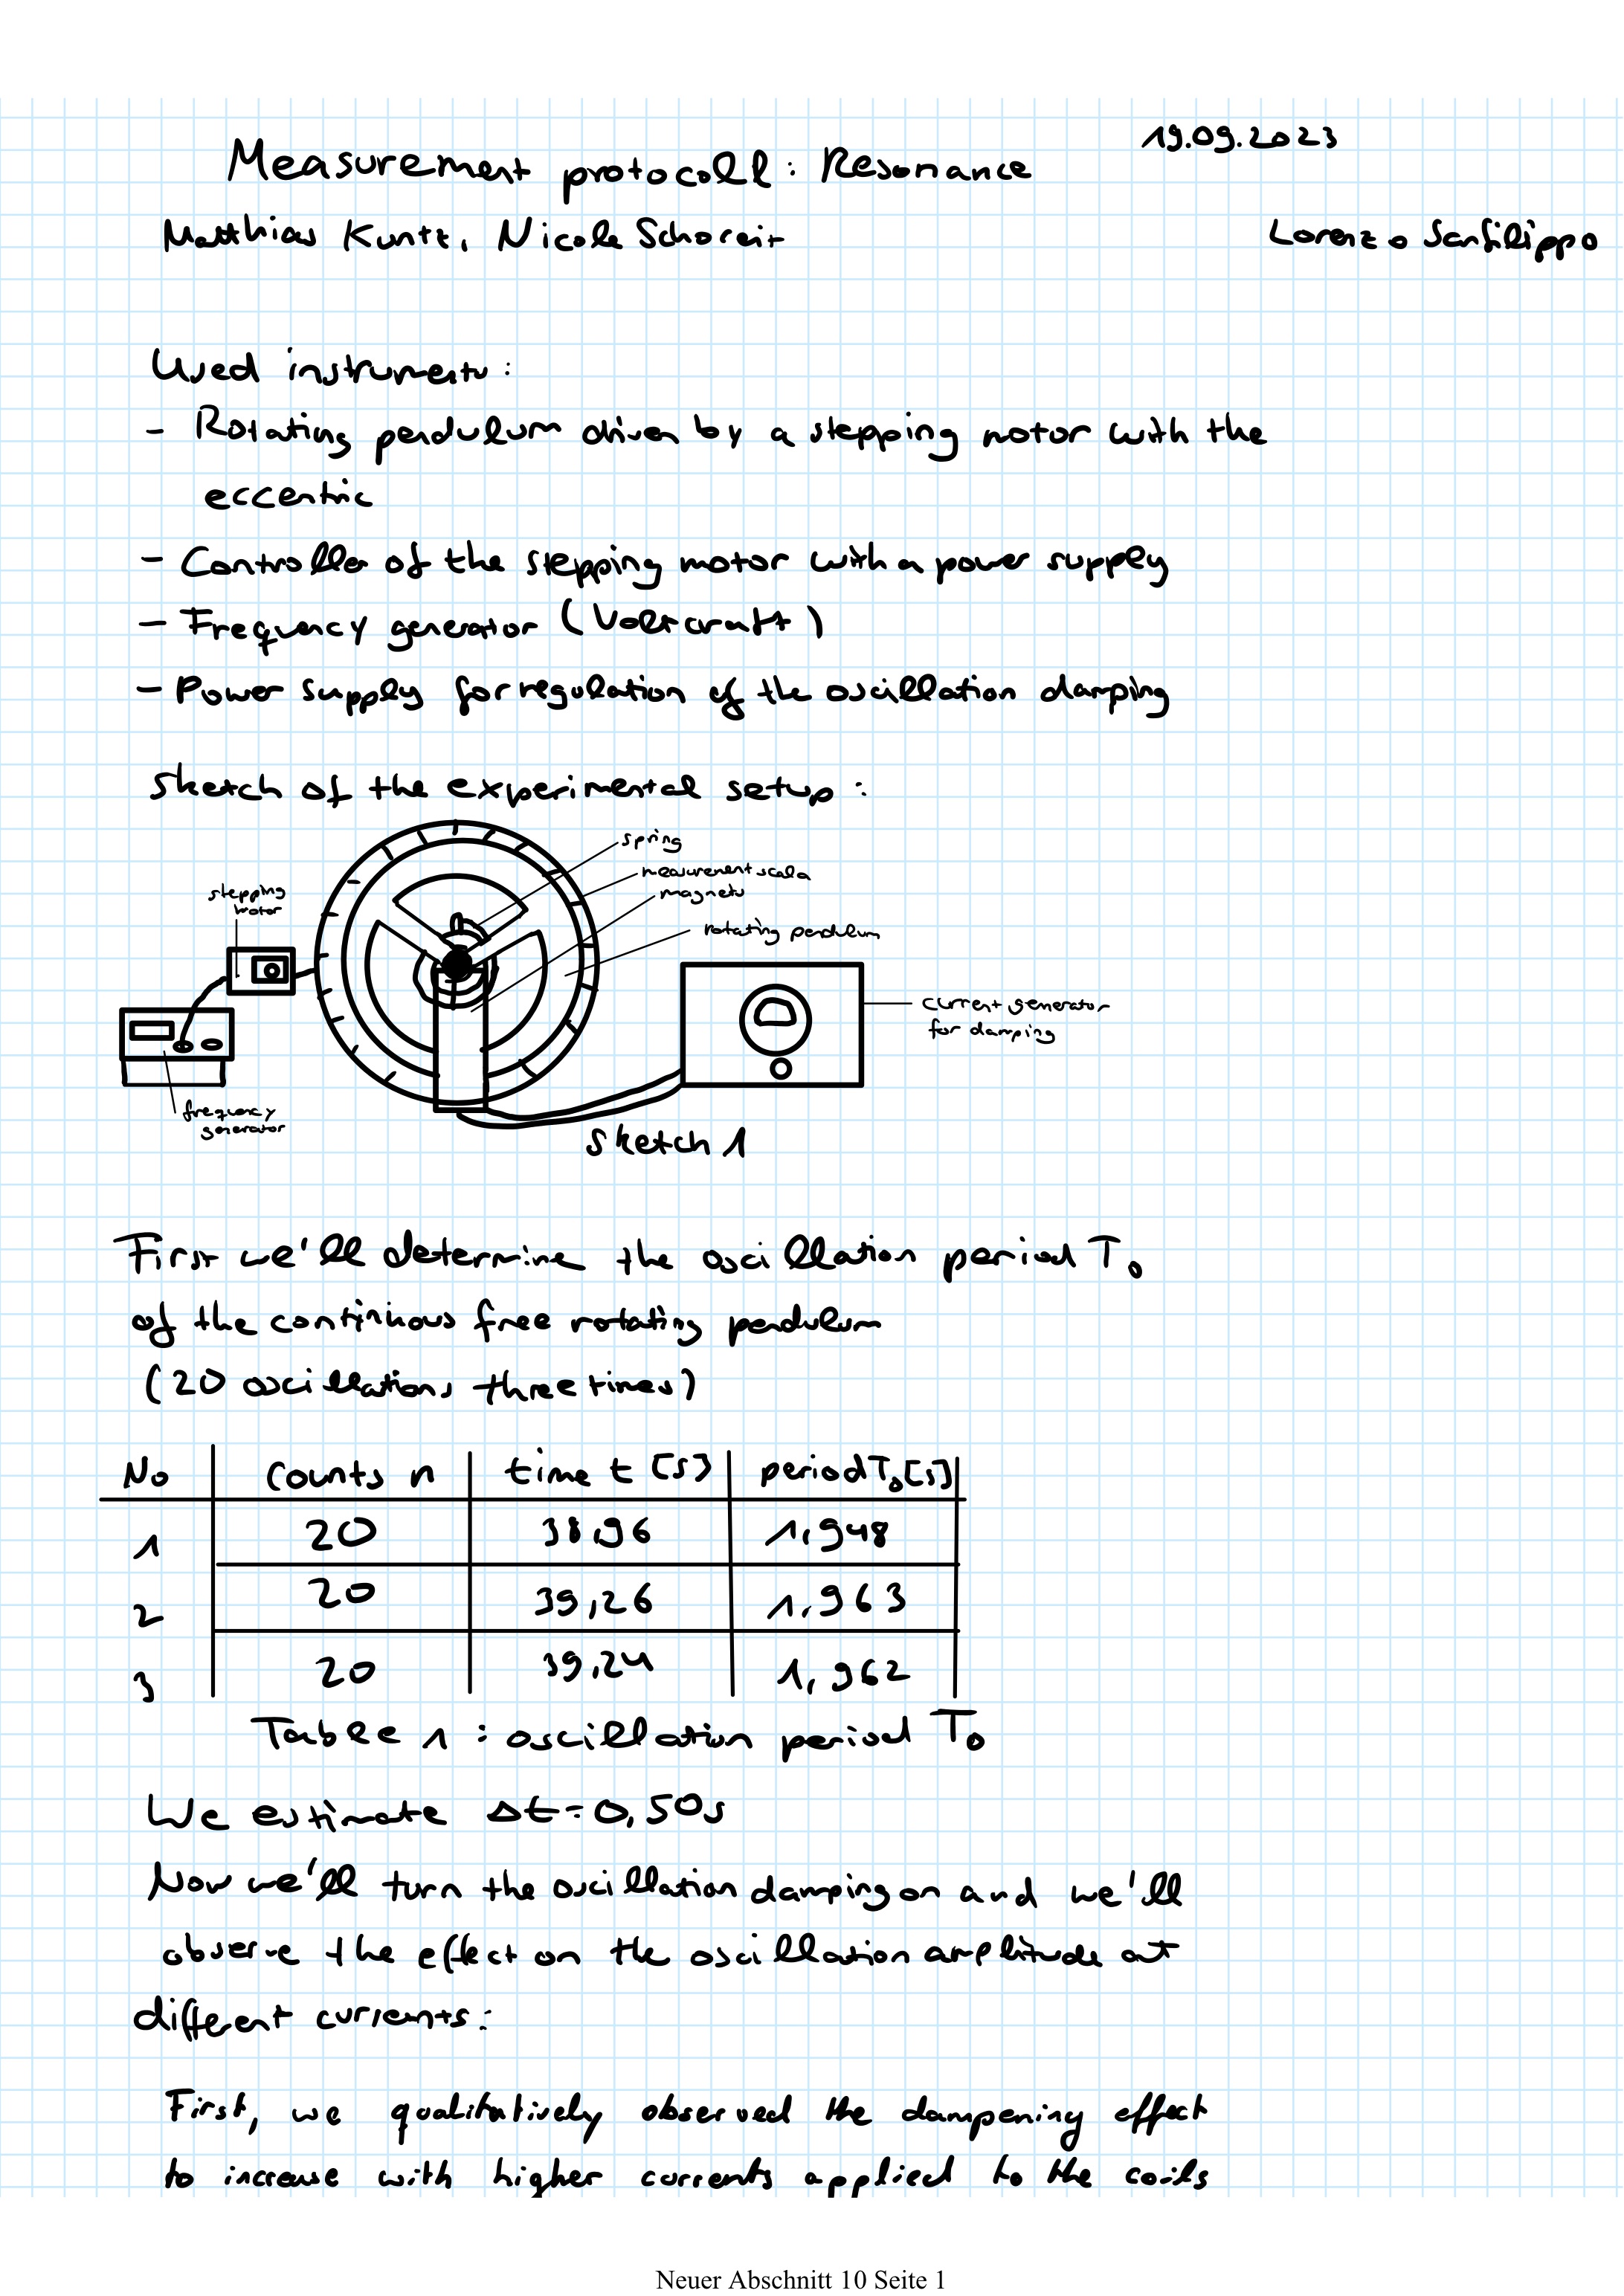 19.09.2023
Measurement protocoll: Resonance
Matthias Kuntz, Nicole Schoreit
Lorenzo Sanfilippo
Used instruments:
- Rotating pendulum driven by a stepping motor with the
eccentric
- Controller of the stepping motor with a power supply
- Frequency generator (Voltcraft)
- Power supply for regulation of the oscillation damping
Sketch of the experimental setup:
spring
measurement scala
magnets
rotating pendulum
stepping
motor
current generator
for damping
frequency
generator
Sketch 1
First we'll determine the oscillation period T₀
of the continuous free rotating pendulum
(20 oscillations three times)
No counts n time t [s] period T₀ [s]
1 20 38,96 1,948
2 20 39,26 1,963
3 20 39,24 1,962
Table 1: oscillation period T₀
We estimate Δt=0,50s
Now we'll turn the oscillation damping on and we'll
observe the effect on the oscillation amplitude at
different currents:
First, we qualitatively observed the dampening effect
to increase with higher currents applied to the coils
Neuer Abschnitt 10 Seite 1